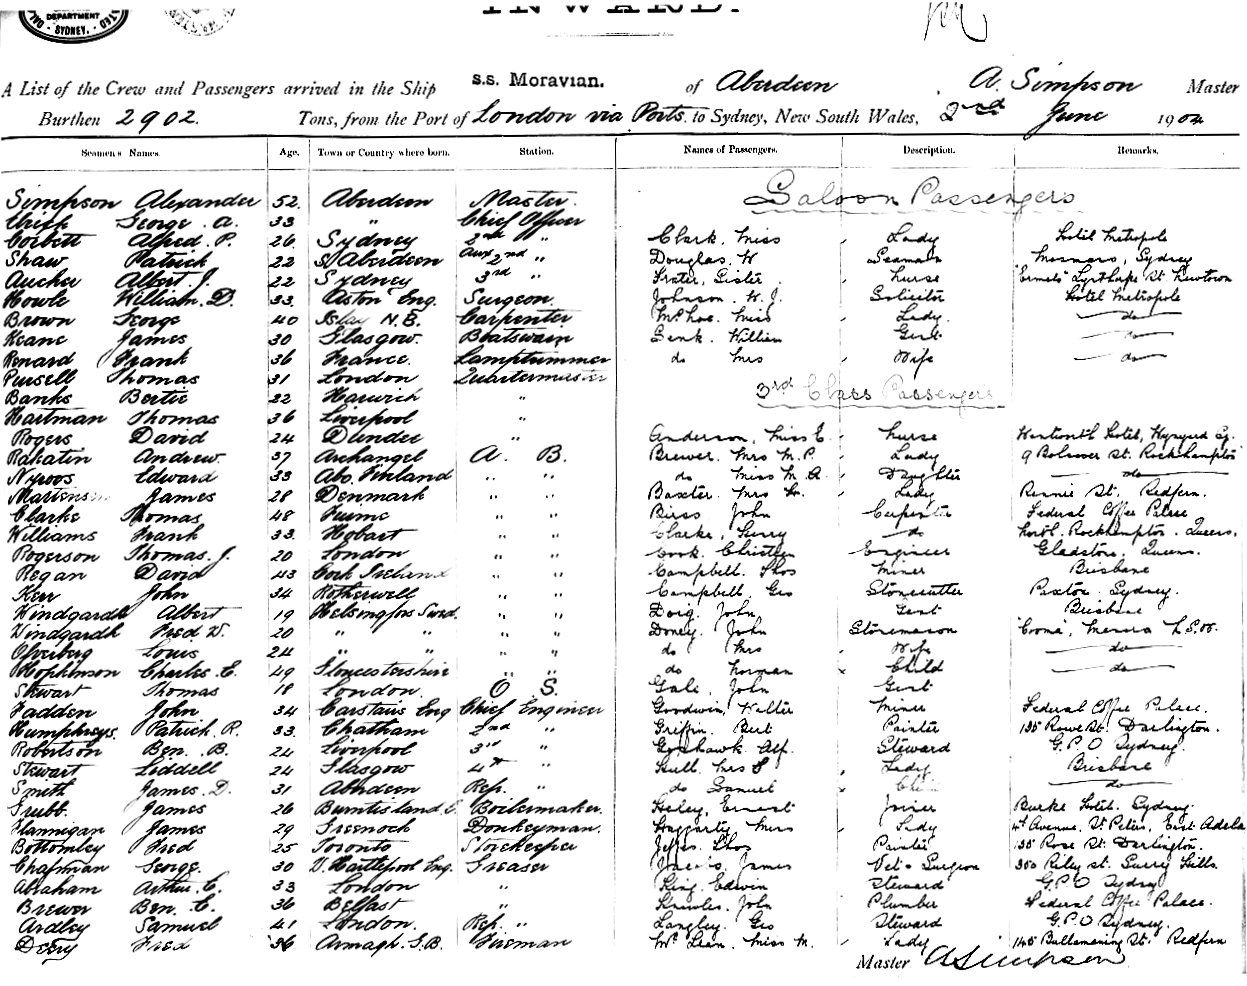 DEPARTMENT
SYDNEY.
INWARD.
A List of the Crew and Passengers arrived in the Ship s.s. Moravian. of Aberdeen A. Simpson Master
Burthen 2902. Tons, from the Port of London via Ports to Sydney, New South Wales, 2nd June 1904
Seamen's Names. Age. Town or Country where born. Station. Names of Passengers. Description. Remarks.
Simpson Alexander 52. Aberdeen Master. Saloon Passengers
George A. 33 " Chief Officer
Corbett Alfred P. 26 Sydney 2nd " Clark, Miss Lady Hotel Metropole
Shaw Patrick 22 Aberdeen Aux 2nd " Douglas. W Seaman Sydney
Albert J. 22 Sydney 3rd " Sister Nurse St Newtown
Howle William. D. 33. Aston Eng. Surgeon. Johnson. W. J. Solicitor Hotel Metropole
Brown George 40 Islay N.B. Carpenter Miss Lady. do
Keane James 30 Glasgow. Boatswain William Gent do
Renard Frank 36 France. Lamptrimmer do Mrs Wife do
Pursell Thomas 31 London Quartermaster
Banks Bertie 22 Harwich " 3rd Class Passengers
Hartman Thomas 36 Liverpool "
Rogers David 24 Dundee " Anderson, Miss E. Nurse Wentworth Hotel, Wynyard Sq.
Andrew. 37 Archangel A. B. Brewer. Mrs M. P. Lady 9 St. Rockhampton
Edward 33 Abo. Finland " " do Miss M. A. Daughter do
James 28 Denmark " " Baxter. Mrs Lady Rennie St. Redfern.
Clarke Thomas 48 Fiume " " Birss John Carpenter Federal Coffee Palace
Williams Frank 33. Hobart " " Clarke, do Rockhampton. Queens.
Rogerson Thomas. J. 20 London " " Cook. Christen Engineer Gladstone. Queens.
Regan David 43 Cork Ireland " " Campbell. Thos Miner Brisbane
Kerr John 34 Rotherwell " " Campbell. Geo Stonecutter Sydney.
Windgardh Albert 19 Helsingfors Swed. " " Doig. John Gent Brisbane
Windgardh Fred W. 20 " " " " Doney. John Stonemason "Cooma",
Louis 24 " " " " do Mrs Wife do
Hopkinson Charles. E. 49 Gloucestershire " " do Norman Child do
Stewart Thomas 18 London. O. S. Gale. John Gent
Fadden John 34 Carstairs Eng Chief Engineer Goodwin, Walter Miner Federal Coffee Palace.
Humphreys. Patrick. R. 33. Chatham 2nd " Griffin. Bert Painter 135 Rowe St. Darlington.
Robertson Ben. B. 24 Liverpool 3rd " Goshawk. Alf. Steward G.P.O Sydney.
Stewart Liddell 24 Glasgow 4th " Hull. Mrs Lady Brisbane
Smith James. D. 31 Aberdeen Rep. " do Samuel Child do
Grubb. James 26 Burntisland Boilermaker. Heley, Ernest Joiner Burke Hotel. Sydney.
Flannigan James 29 Greenock Donkeyman. Haggarty Mrs Lady 4th Avenue. St Peters, East Adela
Bottomley Fred 25 Toronto Storekeeper Thos Painter 135 Rose St. Darlington.
Chapman George. 30 W. Hartlepool Eng. Greaser James Vet. Surgeon 350 Riley St. Surry Hills.
Abraham Arthur. E. 33 London " King. Edwin Steward G.P.O Sydney
Brewer Ben. E. 36 Belfast " Knowles. John Plumber Federal Coffee Palace.
Ardley Samuel 41 London. Rep. " Langley. Geo Steward G.P.O Sydney.
Deery Fred 36 Armagh. G.B. Fireman McLean. Miss M. Lady 145 St. Redfern
Master A Simpson